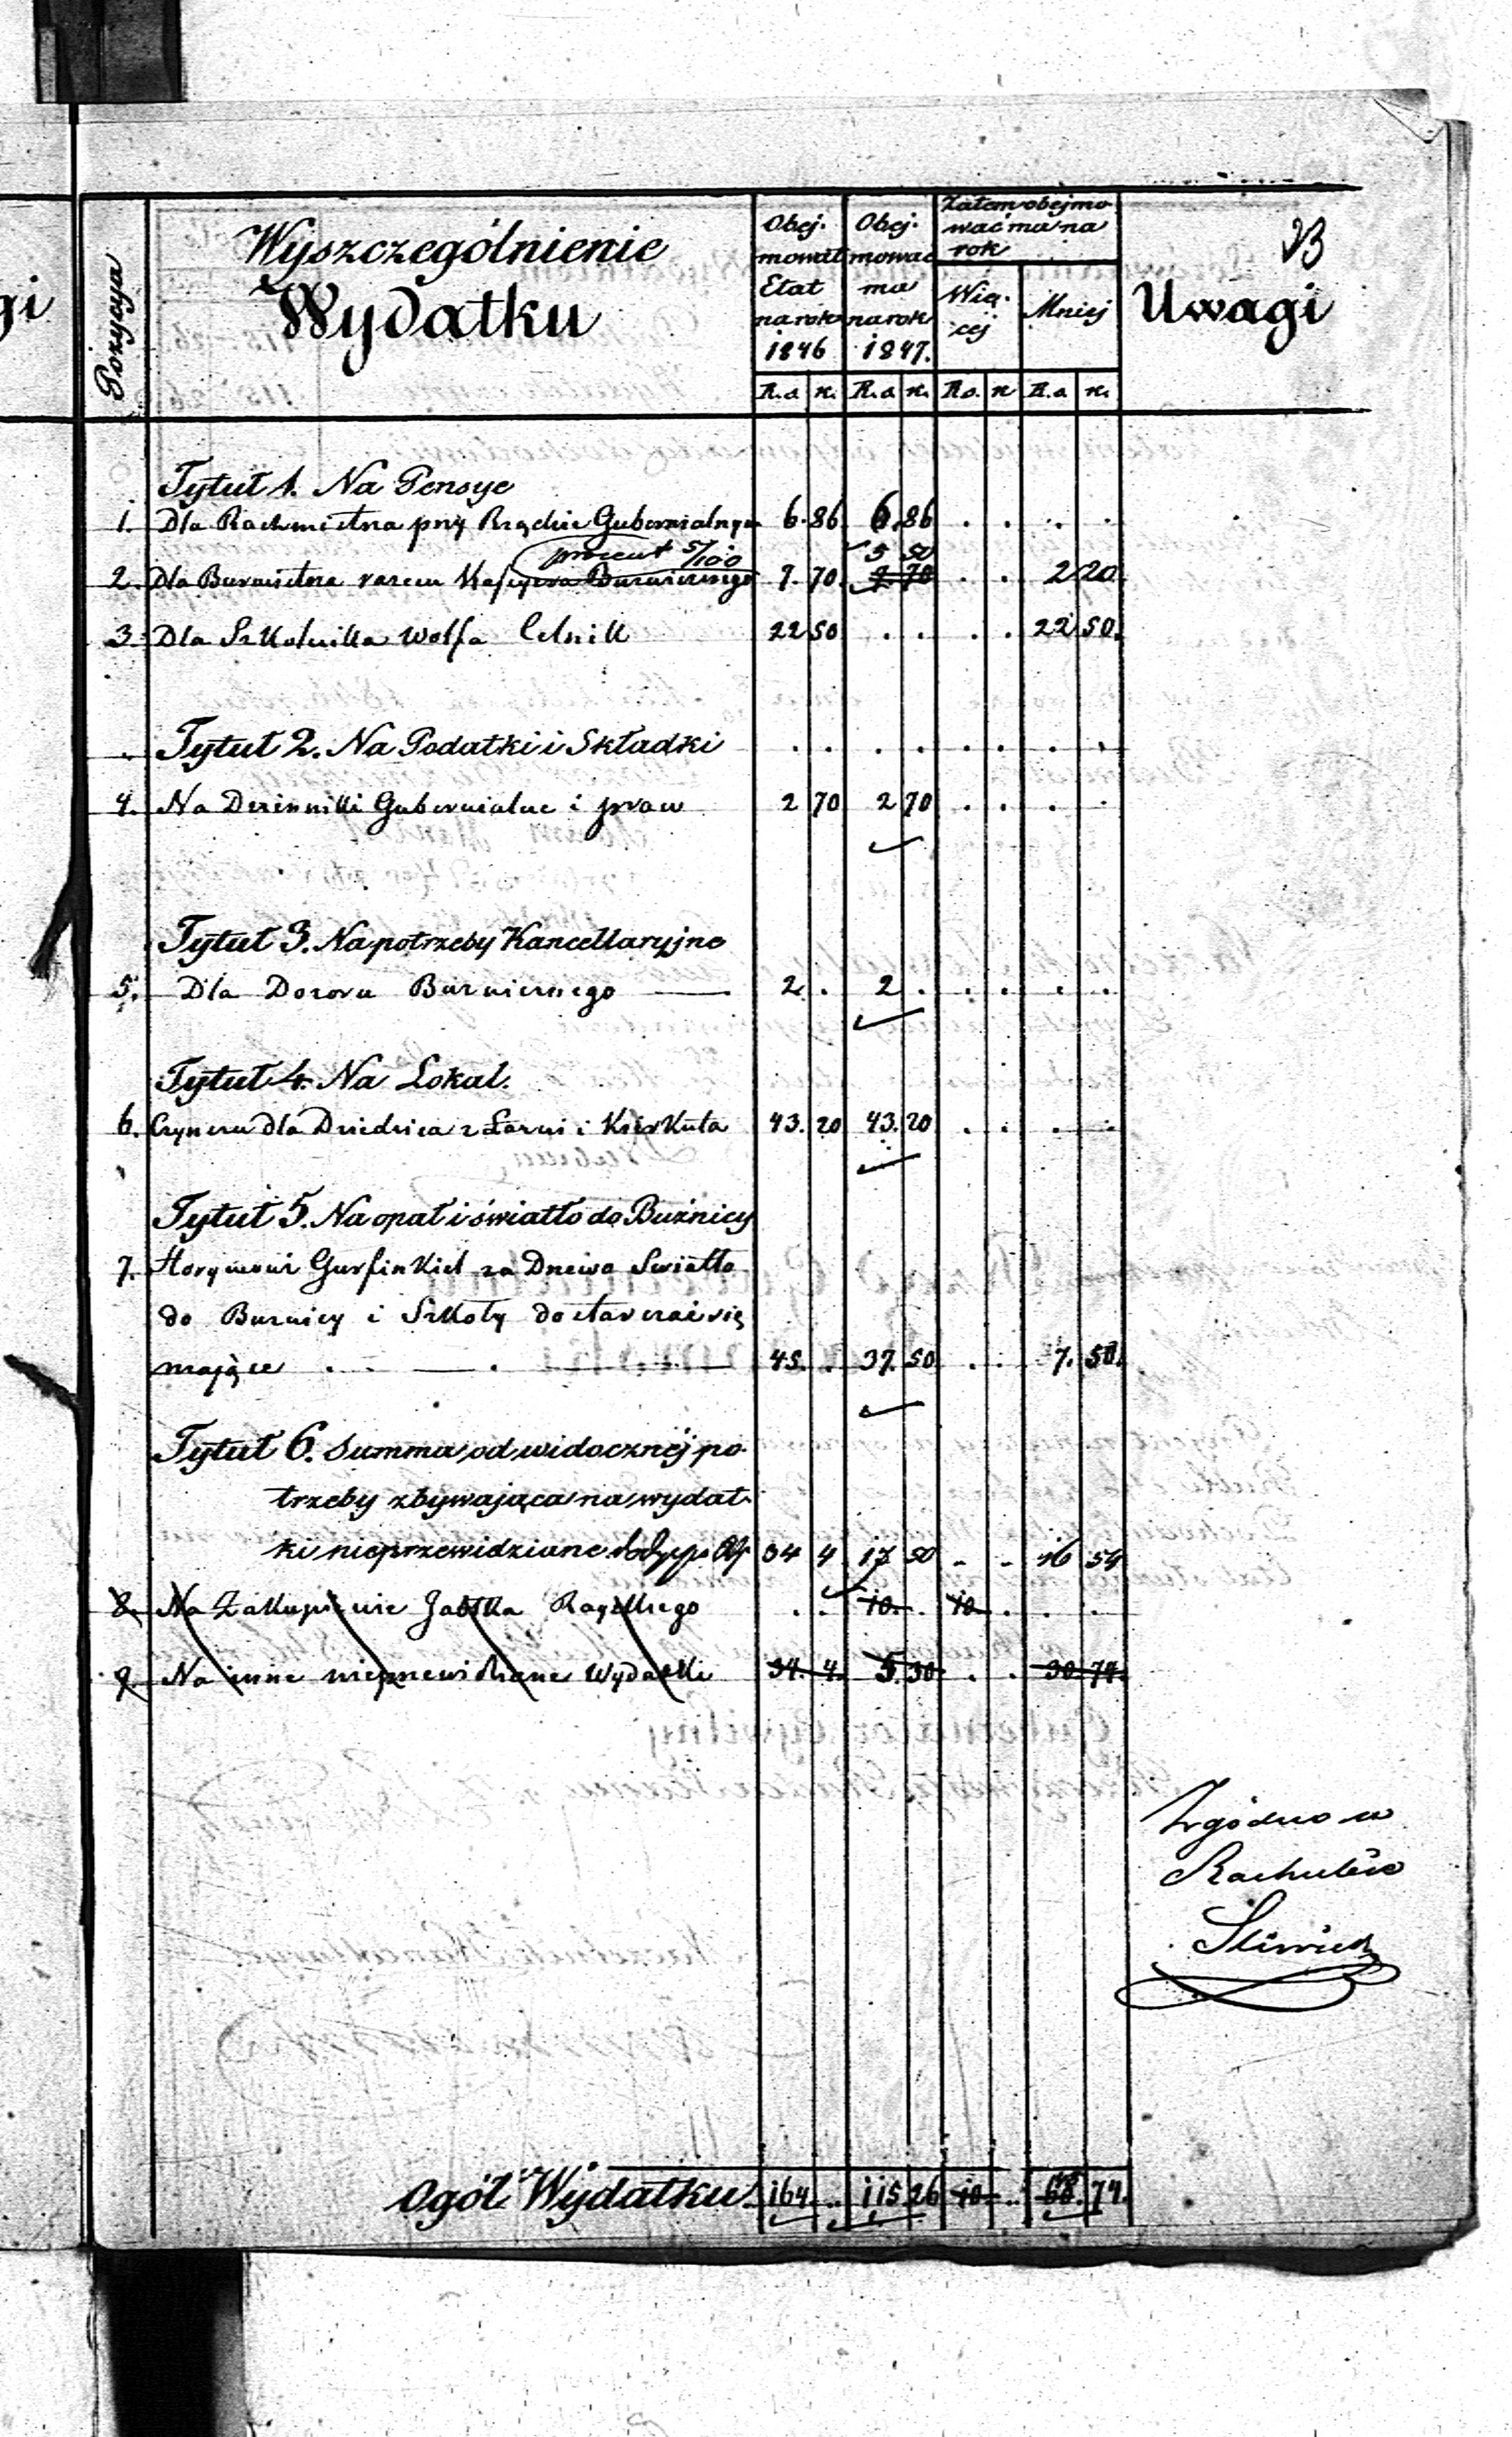 gi
Pozycya
Wyszczególnienie
Wydatku
Obej-
mował
Etat
na rok
1846
Obej-
mować
ma
na rok
1847.
Zatem obejmo
wać ma na
rok
Wię-
cej
Mniej
23
Uwagi
R.s. k. R.s. k. R.s. k R.s k.
Tytuł 1. Na Pensye
1. Dla Rachmistrza przy Rządzie Gubernialnym 6. 86. 6. 86 . . . .
procent 5/100 5 50
2. Dla Burmistrza razem Kasyera Bużniczego 7. 70. 7 70 . . 2 20.
3. Dla Szkolnika Wolfa Celnik 22 50 . . . . 22 50.
Tytuł 2. Na Podatki i Składki . . . . . . . .
4. Na Dzienniki Gubernialne i praw 2 70 2 70 . . . .
Tytuł 3. Na potrzeby Kancellaryjne
5. Dla Dozoru Bużnicznego — 2 . 2 . . . . .
Tytuł 4. Na Lokal.
6. Czynszu dla Dziedzica z Łazni i Kirkuta 43. 20 43. 20 . . . .
Tytuł 5. Na opał i światło do Bużnicy
7. Gurfinkiel za Drzewo Swiatło
do Bużnicy i Szkoły dostarczać się
mające . . — . — 45. . 37. 50 . . 7. 50.
Tytuł 6. Summa od widocznéj po-
trzeby zbywająca na wydat-
ki nieprzewidziane 34 4 17 50 - - 16 54
8. Na Zakupienie . . 10. . 10 . . .
9. Na inne nieprzewidziane Wydatki 34. 4. 5. 30 . . 30 74.
Zgodno w
Rachubie
Ogół Wydatku. 164. . 115 26 10 . 68. 74.